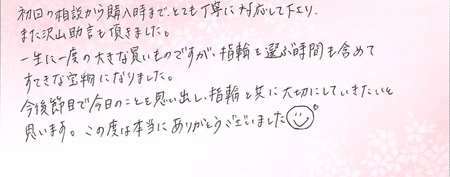 初回の相談から購入時まで、とても丁寧に対応して下さり、
また沢山助言も頂きました。
一生に一度の大きな買いものですが、指輪を選ぶ時間も含めて
すてきな宝物になりました。
今後節目で今日のことを思い出し、指輪と共に大切にしていきたいと
思います。この度は本当にありがとうございました